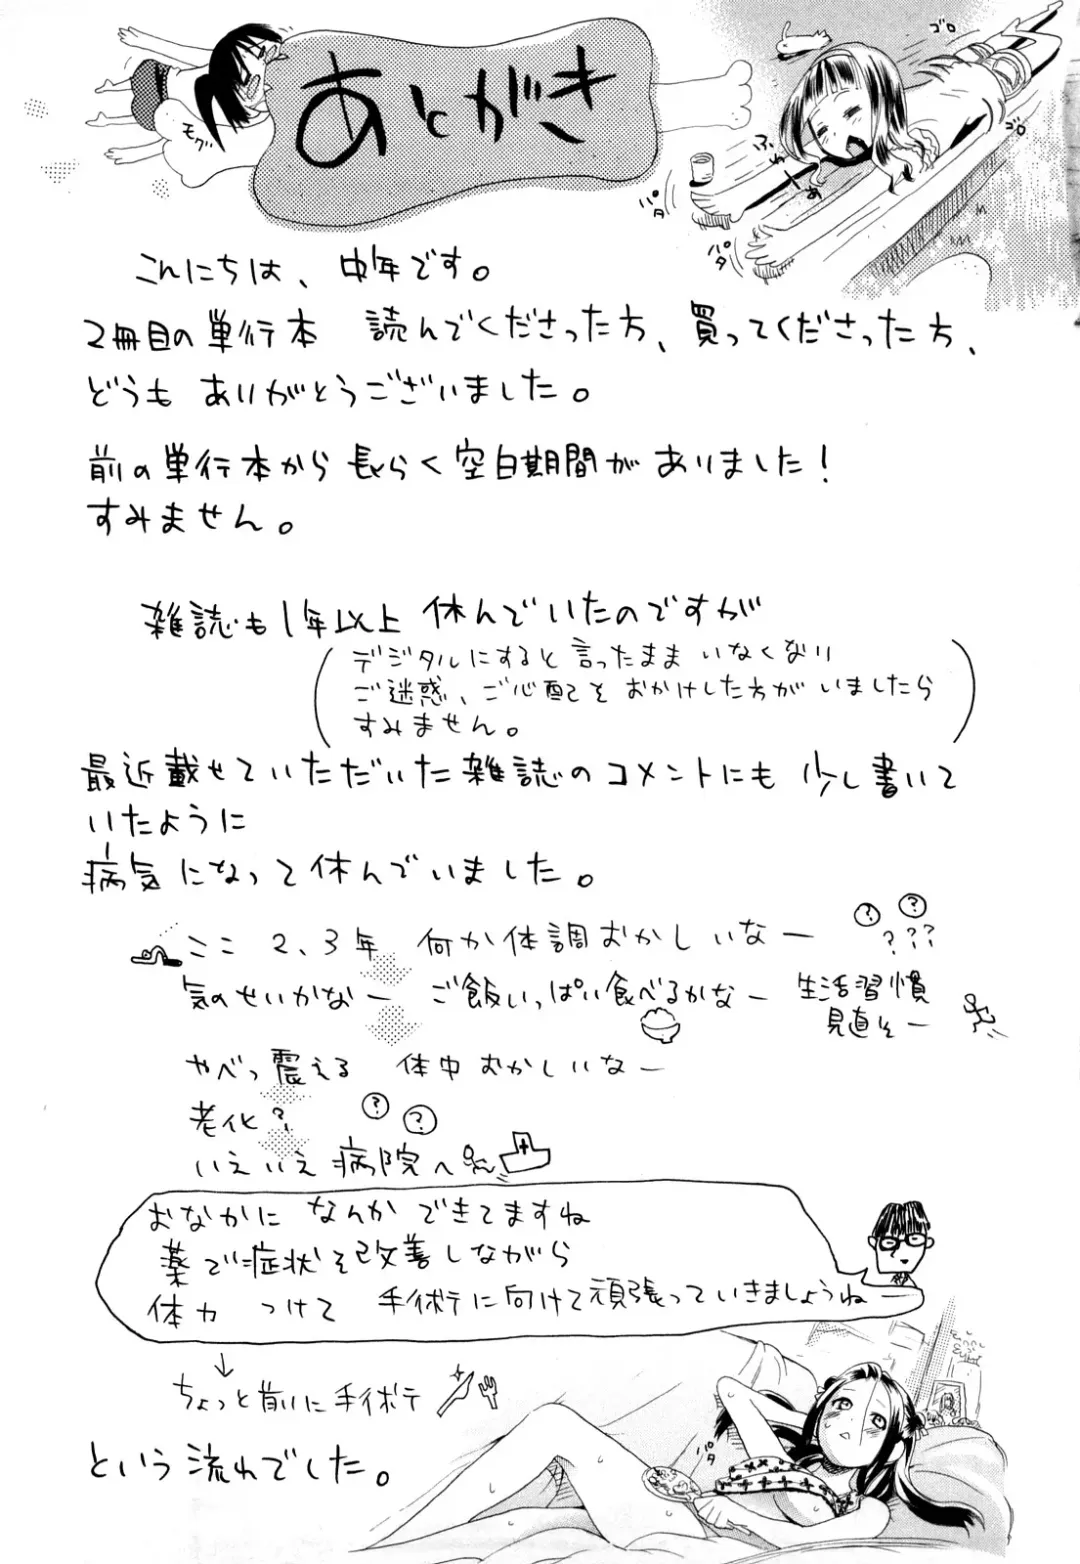 あとがき
モグ
ふわーぁ
ゴロ
ゴロ
パタ
パタ
こんにちは、中年です。
2冊目の単行本 読んでくださった方、買ってくださった方、
どうも ありがとうございました。
前の単行本から 長らく空白期間が ありました!
すみません。
雑誌も1年以上 休んでいたのですが
(デジタルにすると言ったまま いなくなり
ご迷惑、ご心配を おかけした方が いましたら
すみません。)
最近載せていただいた雑誌のコメントにも 少し書いて
いたように
病気になって休んでいました。
ここ 2、3年 何か体調おかしいなー ? ? ? ??
気のせいかなー ご飯いっぱい食べるかなー 生活習慣
見直そー
やべっ震える 体中おかしいなー
老化? ? ?
いえいえ病院へ
おなかに なんか できてますね
薬で症状を改善しながら
体力 つけて 手術に向けて頑張っていきましょうねー
↓
ちょっと前に手術
という流れでした。
パタ